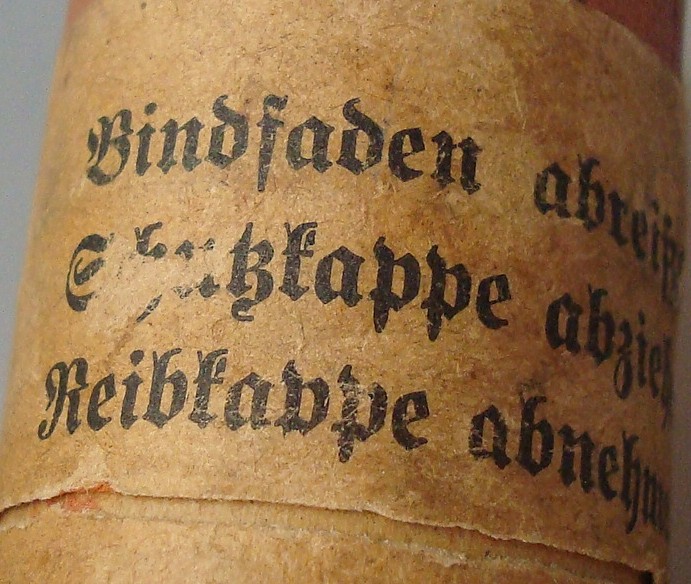 Bindfaden abreiß
Schutzkappe abzieh
Reibkappe abnehm